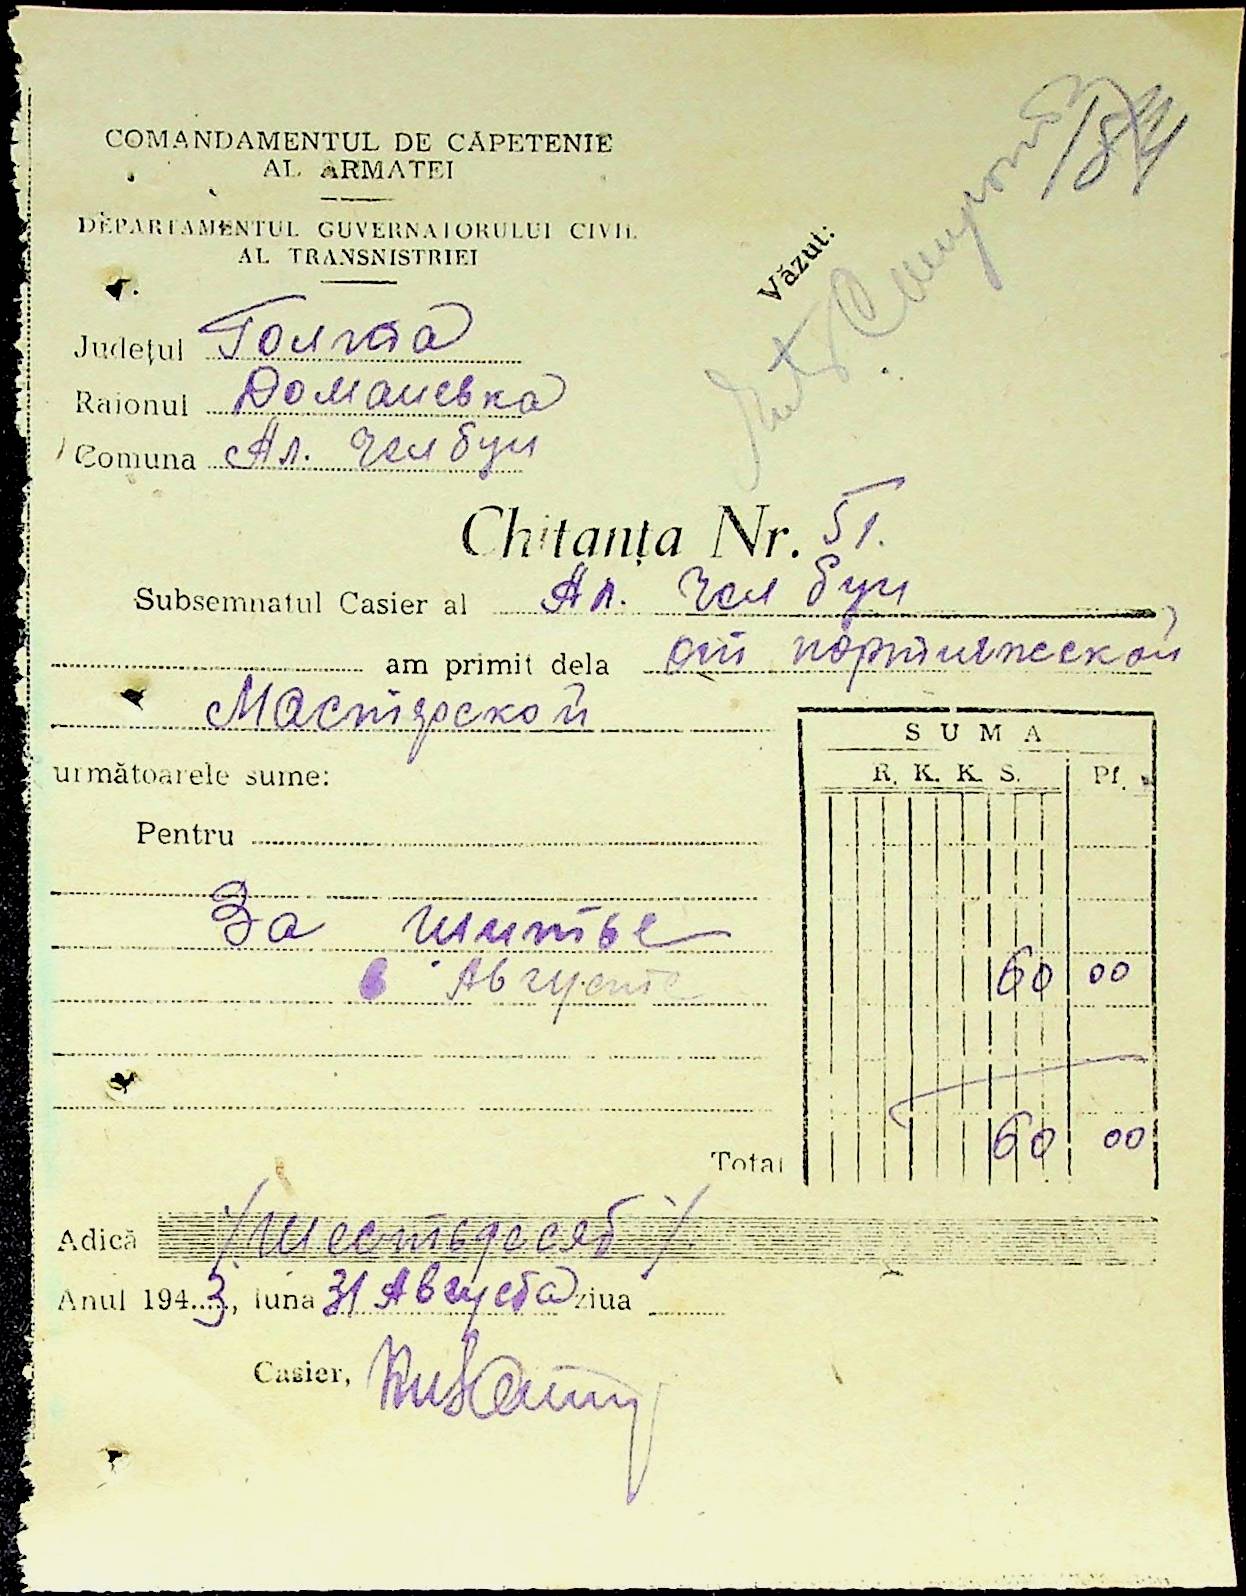 COMANDAMENTUL DE CĂPETENIE
AL ARMATEI
DEPARTAMENTUL GUVERNATORULUI CIVIL
AL TRANSNISTRIEI
Văzut:
18
Județul Голта
Raionul Доманевка
Comuna Ал. Чел бун
Chitanța Nr. 51.
Subsemnatul Casier al Ал. Чел бун
am primit dela от портняжеской
Мастерской
următoarele sume:
SUMA
R. K. K. S. Pf.
Pentru
За шитье
в Августе 60 00
Total 60 00
Adică /Шестьдесяб/
Anul 1943, luna 31 Августа ziua
Casier,